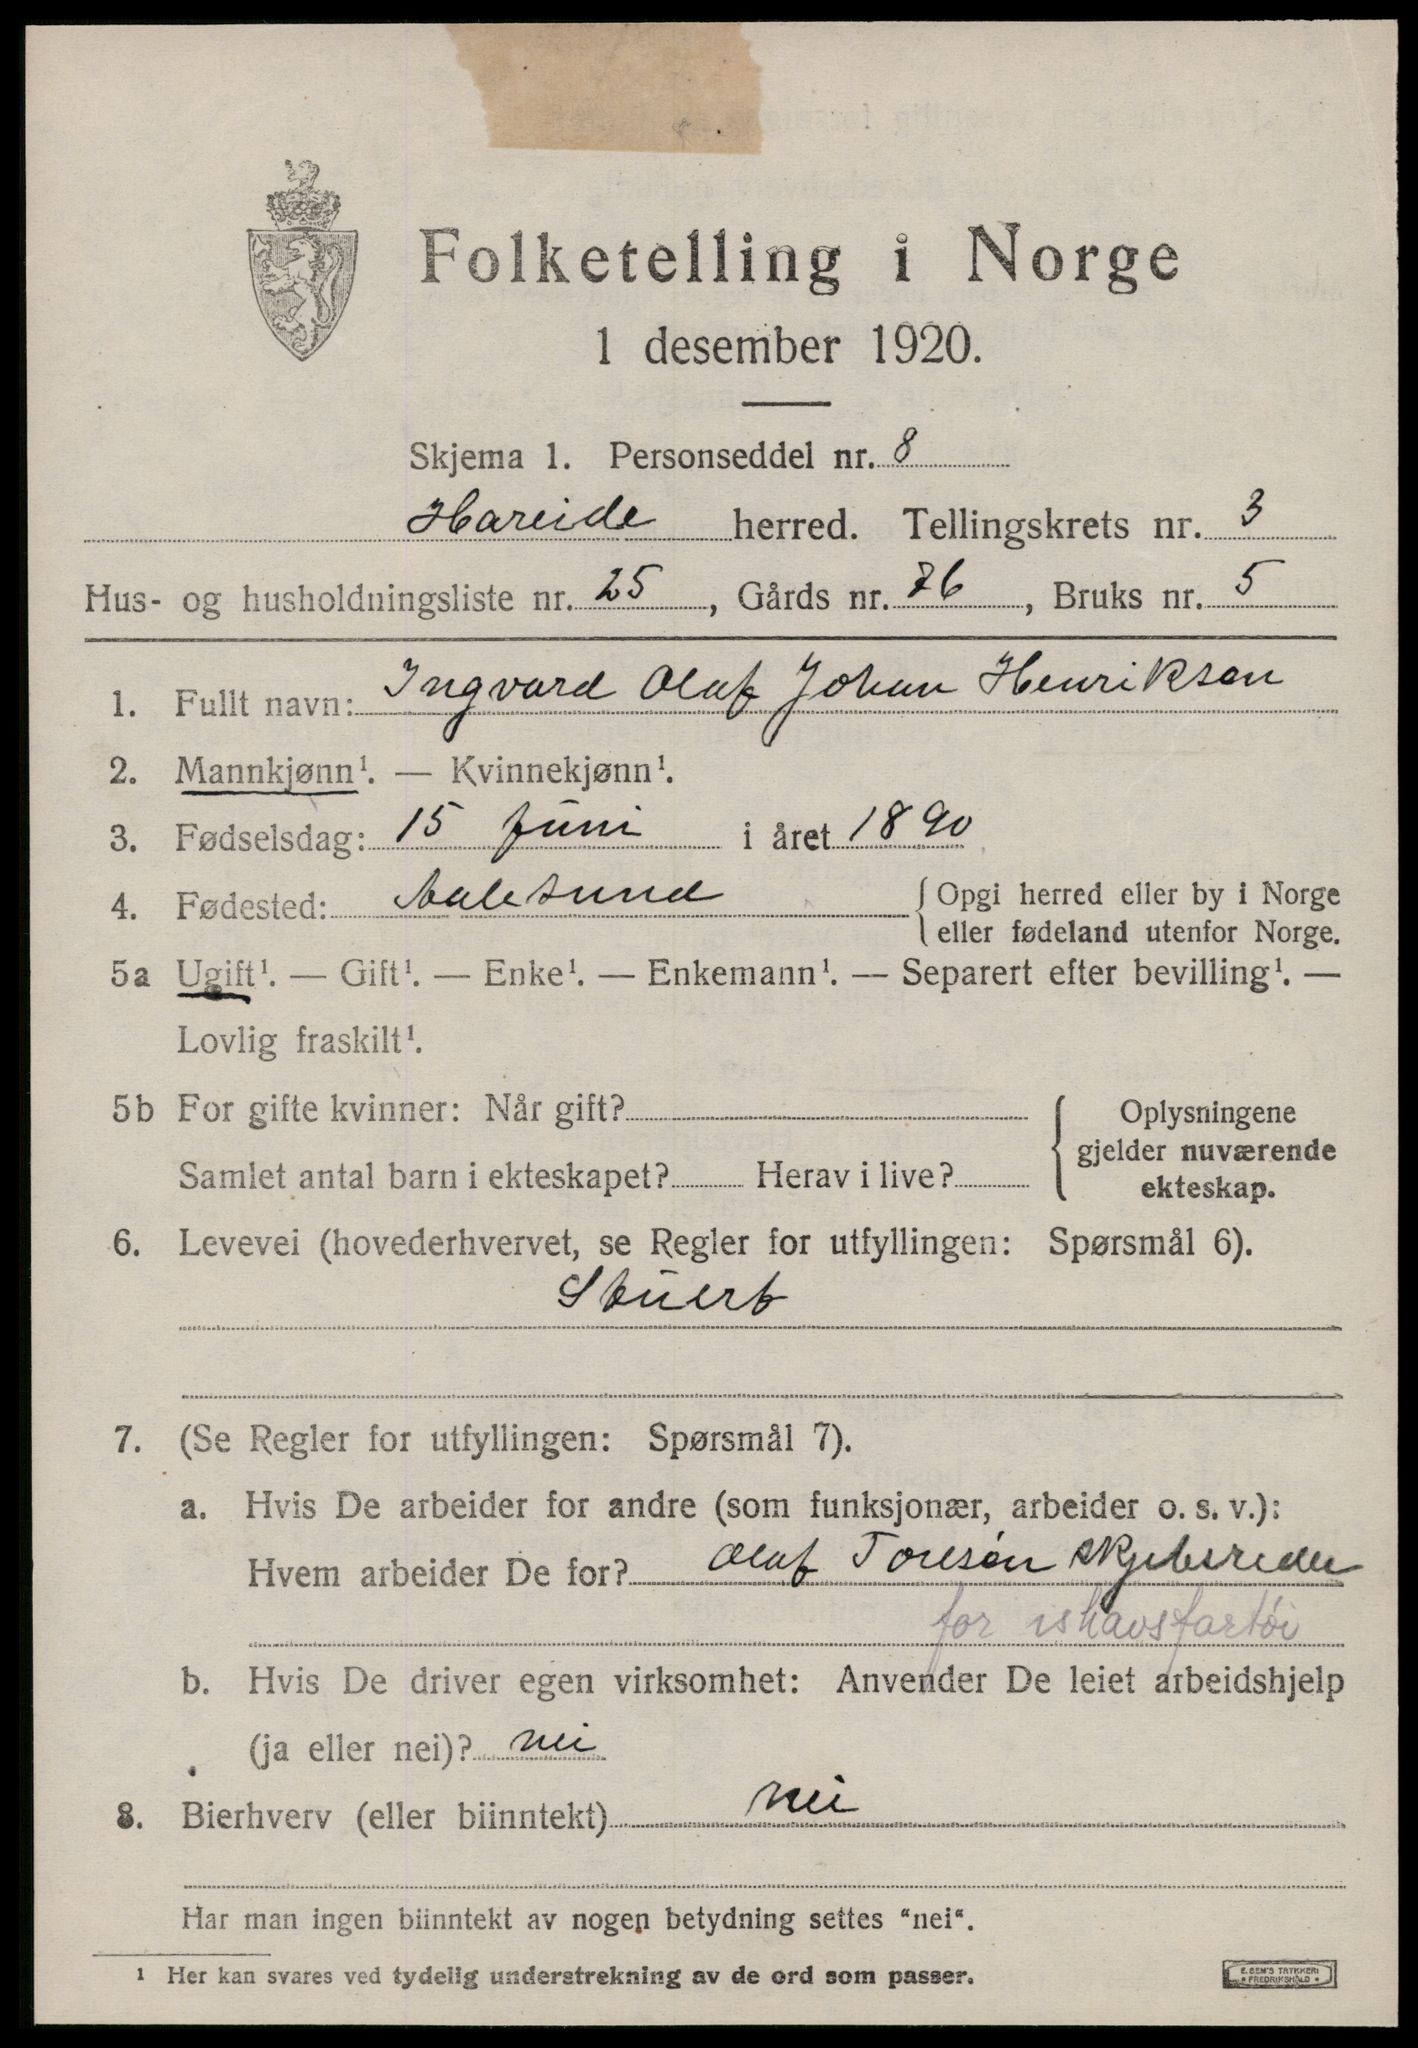 Folketelling i Norge
1 desember 1920.
Skjema 1. Personseddel nr. 8
Hareide herred. Tellingskrets nr. 3
Hus- og husholdningsliste nr. 25, Gårds nr. 76, Bruks nr. 5
1. Fullt navn: Ingvard Olaf Johan Henriksen
2. Mannkjønn¹. — Kvinnekjønn¹.
3. Fødselsdag: 15 juni i året 1890
4. Fødested: Aalesund { Opgi herred eller by i Norge
eller fødeland utenfor Norge.
5a Ugift¹. — Gift¹. — Enke¹. — Enkemann¹. — Separert efter bevilling¹. —
Lovlig fraskilt¹.
5b For gifte kvinner: Når gift? { Oplysningene
gjelder nuværende
Samlet antal barn i ekteskapet? Herav i live? ekteskap.
6. Levevei (hovederhvervet, se Regler for utfyllingen: Spørsmål 6).
Stuert
7. (Se Regler for utfyllingen: Spørsmål 7).
a. Hvis De arbeider for andre (som funksjonær, arbeider o. s. v.):
Hvem arbeider De for? Olaf skjebsreder
for ishavsfartøi
b. Hvis De driver egen virksomhet: Anvender De leiet arbeidshjelp
(ja eller nei)? nei
8. Bierhverv (eller biinntekt) nei
Har man ingen biinntekt av nogen betydning settes “nei“.
¹ Her kan svares ved tydelig understrekning av de ord som passer.
E. SEM'S TRYKKERI
FREDRIKSHALD